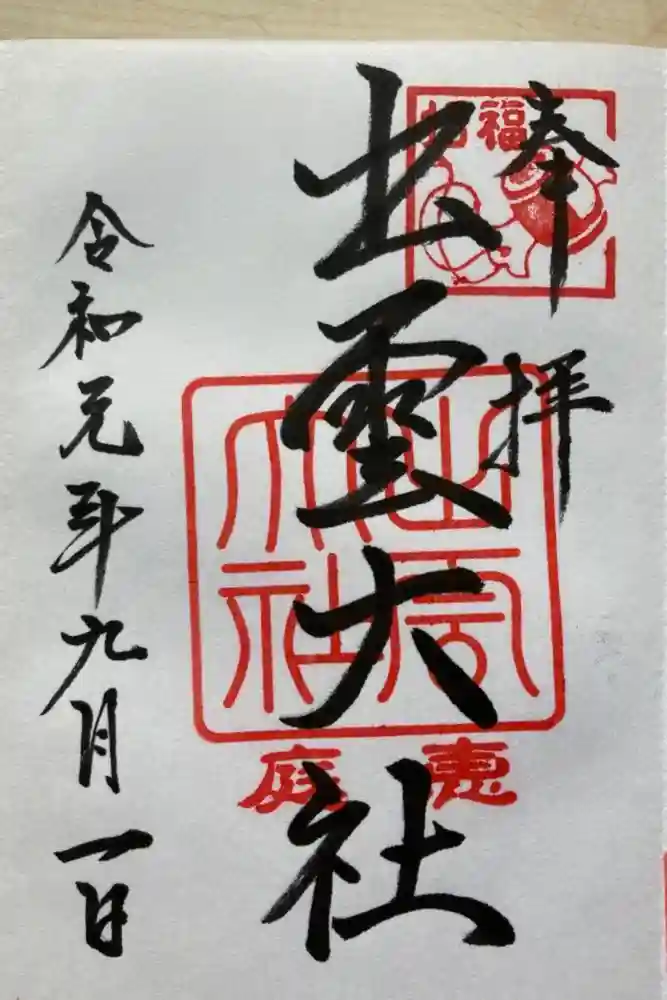 奉拝
出雲大社
令和元年九月一日
福
出雲大社
恵庭